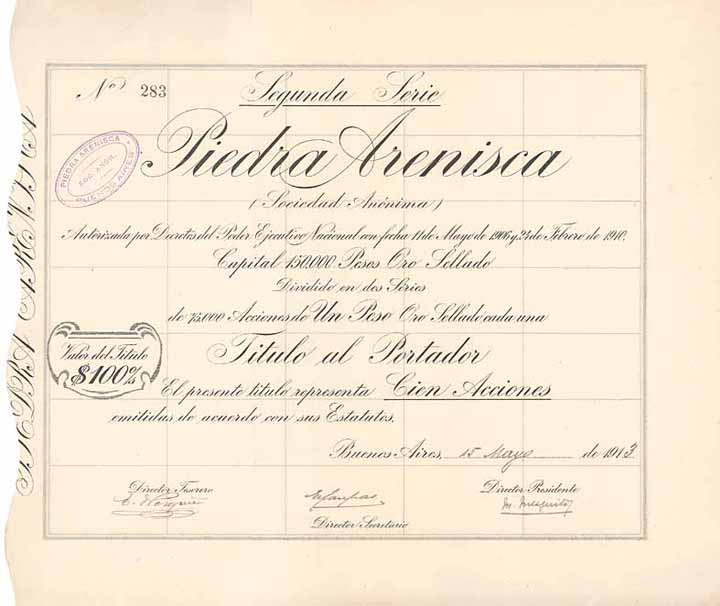 Nº 283
Segunda Serie
PIEDRA ARENISCA
SOC. ANÓN.
BUENOS AIRES
Piedra Arenisca
(Sociedad Anónima)
Autorizada por Decretos del Poder Ejecutivo Nacional con fecha 11 de Mayo de 1906 y 24 de Febrero de 1910.
Capital 150.000 Pesos Oro Sellado
Dividido en dos Séries
de 75.000 Acciones de Un Peso Oro Sellado cada una
Valor del Titulo
$ 100 %
Titulo al Portador
El presente titulo representa Cien Acciones
emitidas de acuerdo con sus Estatutos.
Buenos Aires, 15 Mayo de 1913
Director Tesorero
Director Secretario
Director Presidente